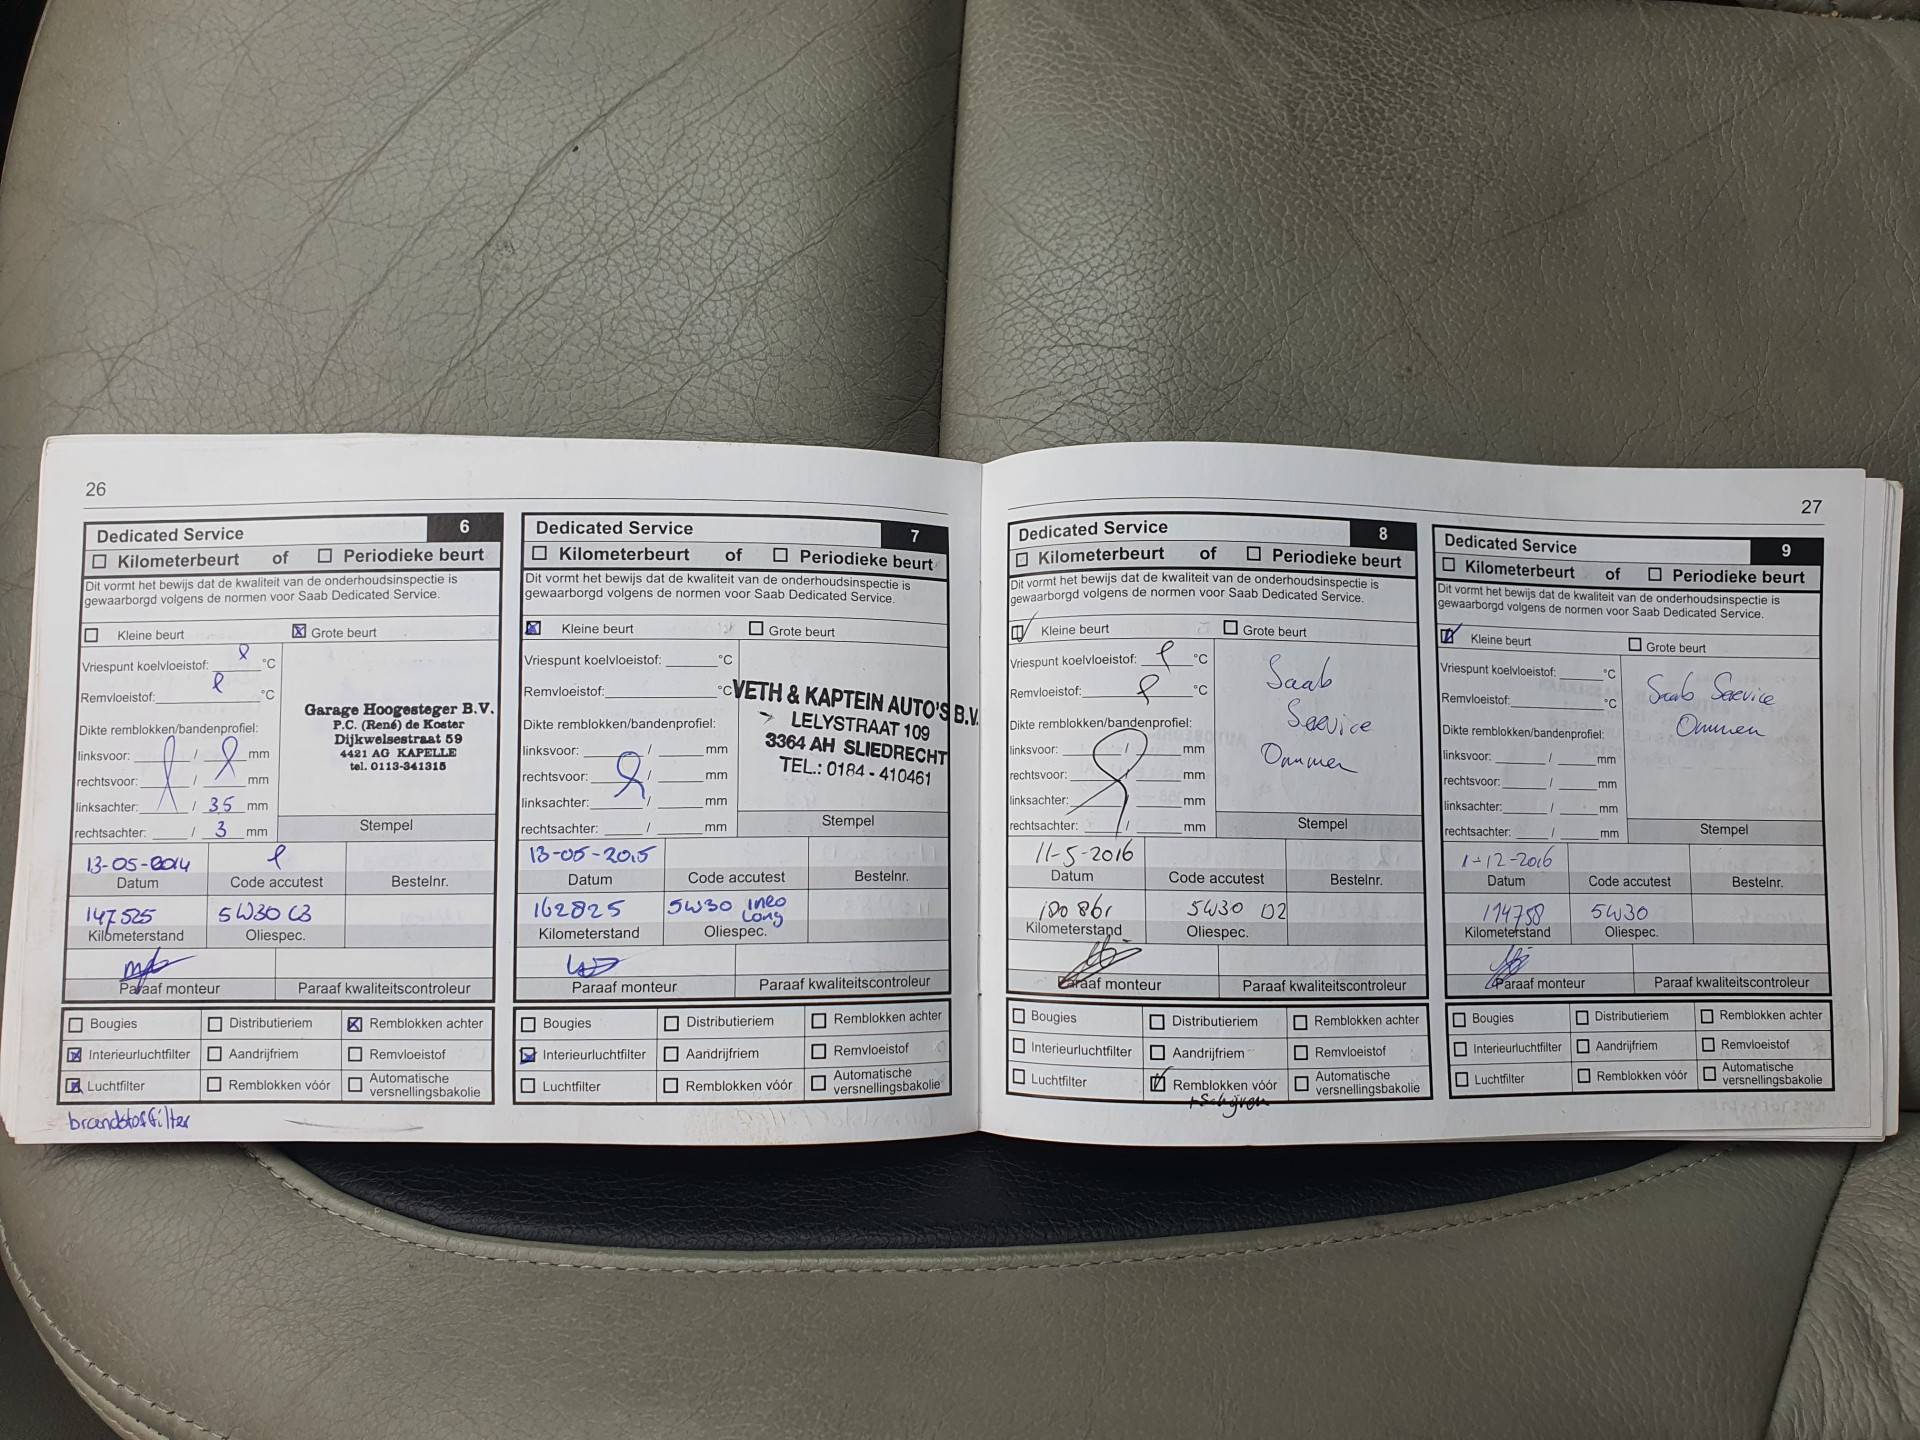 26
Dedicated Service 6
Kilometerbeurt of Periodieke beurt
Dit vormt het bewijs dat de kwaliteit van de onderhoudsinspectie is
gewaarborgd volgens de normen voor Saab Dedicated Service.
Kleine beurt Grote beurt
Vriespunt koelvloeistof: °C
Remvloeistof: °C
Dikte remblokken/bandenprofiel:
linksvoor: / mm
rechtsvoor: / mm
linksachter: / 35 mm
rechtsachter: / 3 mm
Garage Hoogesteger B.V.
P.C. (René) de Koster
Dijkwelsestraat 59
4421 AG KAPELLE
tel. 0113-341315
Stempel
13-05-2014
Datum Code accutest Bestelnr.
147525 5W30 C3
Kilometerstand Oliespec.
Paraaf monteur Paraaf kwaliteitscontroleur
Bougies Distributieriem Remblokken achter
Interieurluchtfilter Aandrijfriem Remvloeistof
Luchtfilter Remblokken vóór Automatische
versnellingsbakolie
brandstoffilter
Dedicated Service 7
Kilometerbeurt of Periodieke beurt
Dit vormt het bewijs dat de kwaliteit van de onderhoudsinspectie is
gewaarborgd volgens de normen voor Saab Dedicated Service.
Kleine beurt Grote beurt
Vriespunt koelvloeistof: °C
Remvloeistof: °C
Dikte remblokken/bandenprofiel:
linksvoor: / mm
rechtsvoor: / mm
linksachter: / mm
rechtsachter: / mm
VETH & KAPTEIN AUTO'S B.V.
LELYSTRAAT 109
3364 AH SLIEDRECHT
TEL.: 0184 - 410461
Stempel
13-05-2015
Datum Code accutest Bestelnr.
162825 5W30 ineo
Long
Kilometerstand Oliespec.
Paraaf monteur Paraaf kwaliteitscontroleur
Bougies Distributieriem Remblokken achter
Interieurluchtfilter Aandrijfriem Remvloeistof
Luchtfilter Remblokken vóór Automatische
versnellingsbakolie
27
Dedicated Service 8
Kilometerbeurt of Periodieke beurt
Dit vormt het bewijs dat de kwaliteit van de onderhoudsinspectie is
gewaarborgd volgens de normen voor Saab Dedicated Service.
Kleine beurt Grote beurt
Vriespunt koelvloeistof: °C
Remvloeistof: °C
Dikte remblokken/bandenprofiel:
linksvoor: / mm
rechtsvoor: / mm
linksachter: / mm
rechtsachter: / mm
Saab
Service
Ommen
Stempel
11-5-2016
Datum Code accutest Bestelnr.
180861 5W30 D2
Kilometerstand Oliespec.
Paraaf monteur Paraaf kwaliteitscontroleur
Bougies Distributieriem Remblokken achter
Interieurluchtfilter Aandrijfriem Remvloeistof
Luchtfilter Remblokken vóór Automatische
versnellingsbakolie
+ Schijven
Dedicated Service 9
Kilometerbeurt of Periodieke beurt
Dit vormt het bewijs dat de kwaliteit van de onderhoudsinspectie is
gewaarborgd volgens de normen voor Saab Dedicated Service.
Kleine beurt Grote beurt
Vriespunt koelvloeistof: °C
Remvloeistof: °C
Dikte remblokken/bandenprofiel:
linksvoor: / mm
rechtsvoor: / mm
linksachter: / mm
rechtsachter: / mm
Saab Service
Ommen
Stempel
1-12-2016
Datum Code accutest Bestelnr.
5W30
Kilometerstand Oliespec.
Paraaf monteur Paraaf kwaliteitscontroleur
Bougies Distributieriem Remblokken achter
Interieurluchtfilter Aandrijfriem Remvloeistof
Luchtfilter Remblokken vóór Automatische
versnellingsbakolie